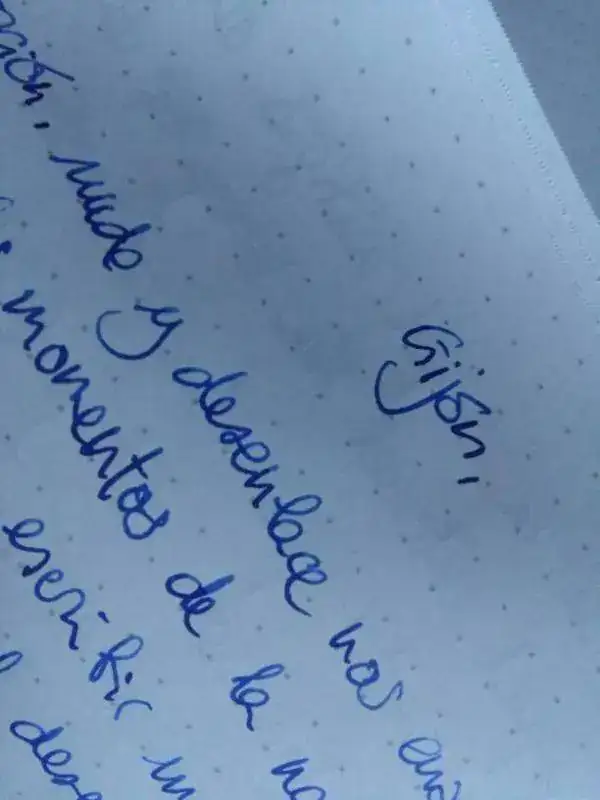 Gijón,
nudo y desenlace nos
momentos de la
escribir un